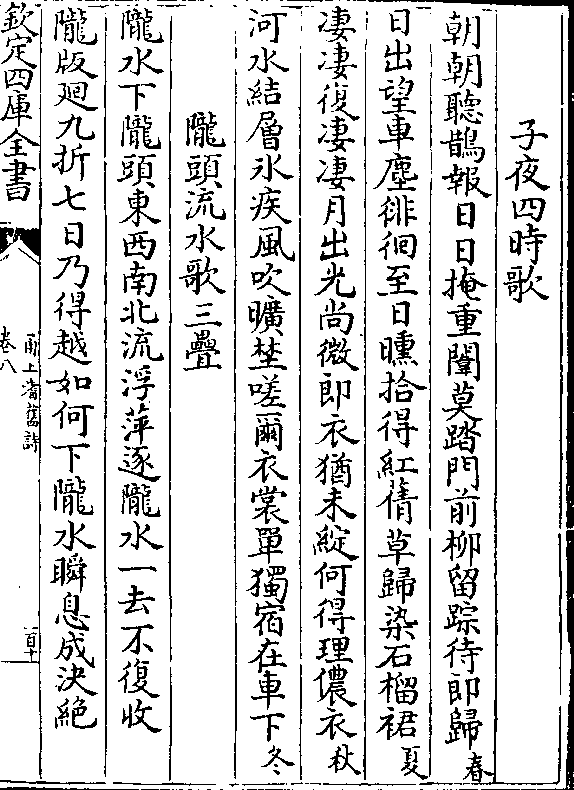 子夜四時歌
朝朝聽鵲報日日掩重闈莫踏門前柳留踪待郎歸春
日出望車塵徘徊至日曛拾得紅蒨草歸染石榴裙夏
凄凄復凄凄月出光尚微郎衣猶未綻何得理儂衣秋
河水結層氷疾風吹曠埜嗟爾衣裳單獨宿在車下冬
隴頭流水歌三疊
隴水下隴頭東西南北流浮萍逐隴水一去不復收
隴版廻九折七日乃得越如何下隴水瞬息成決絶
欽定四庫全書
甬上耆舊詩
卷八
百十